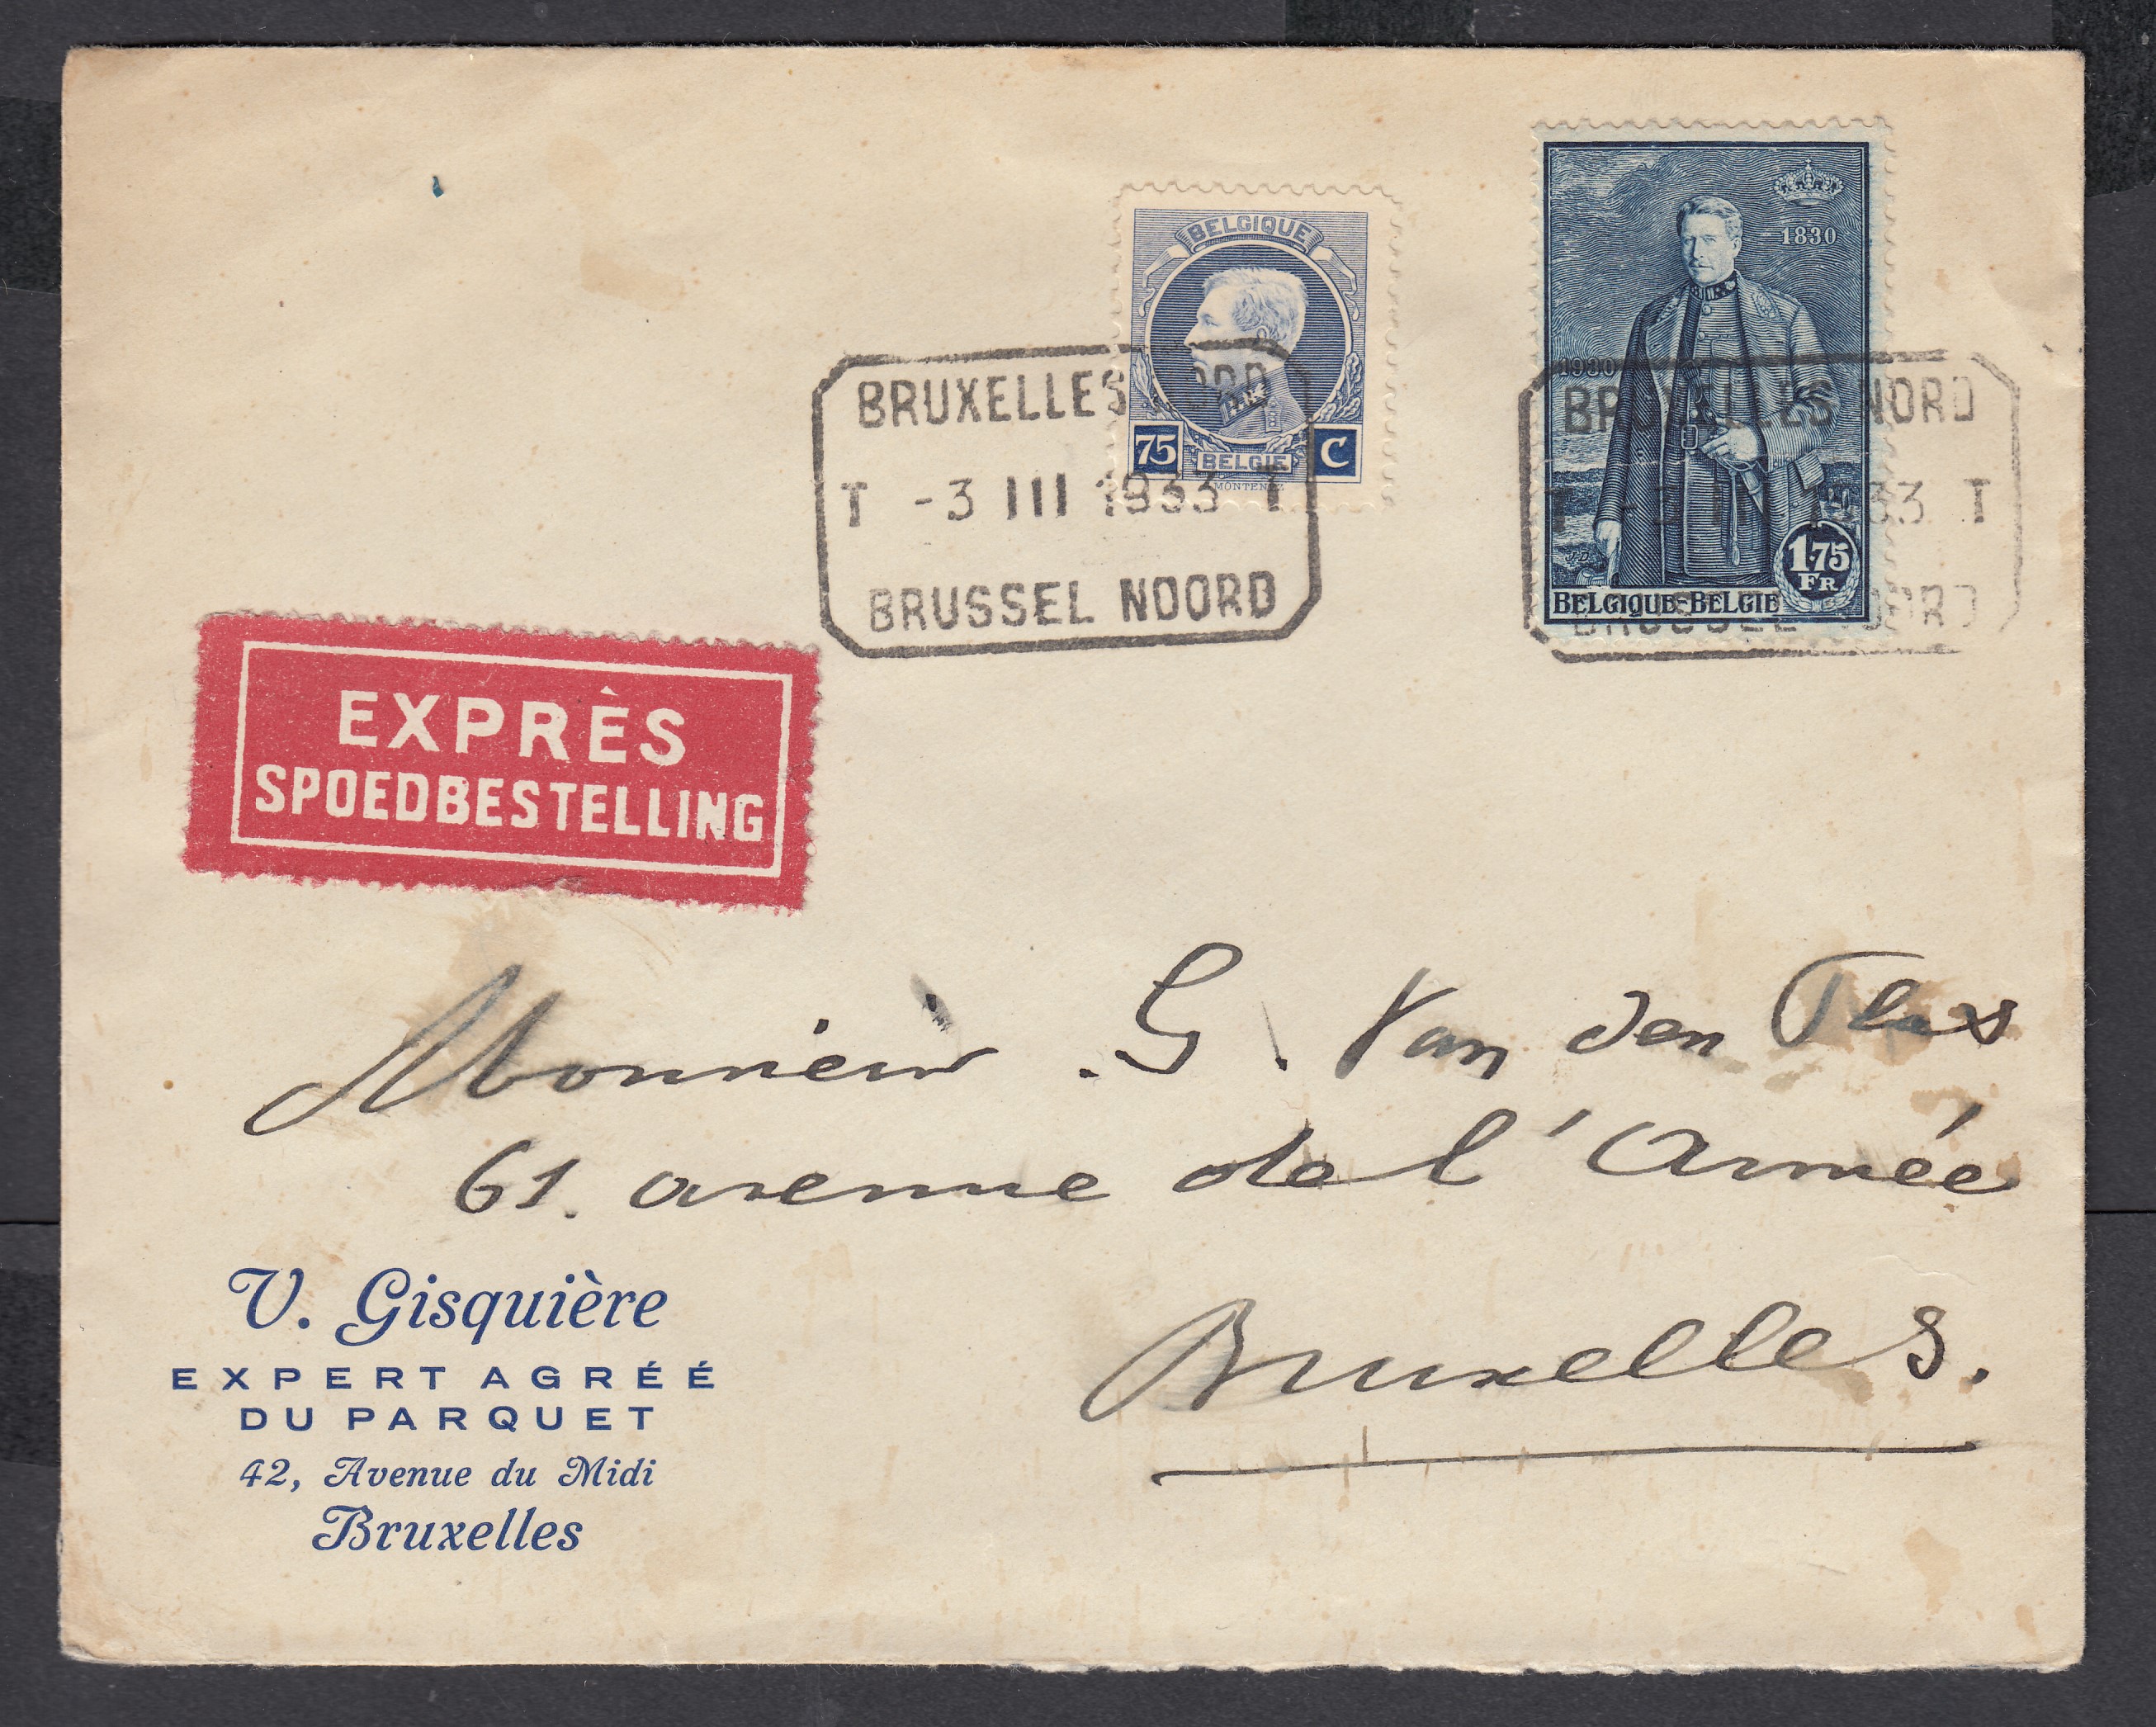 BELGIQUE
75 C
BELGIE
MONTENEZ
1830
1930
1.75
FR
BELGIQUE-BELGIE
BRUXELLES NORD
T -3 III 1933 T
BRUSSEL NOORD
BRUXELLES NORD
T -3 III 1933 T
BRUSSEL NOORD
EXPRÈS
SPOEDBESTELLING
Monsieur G. Van den
61. avenue de l'Armée
Bruxelles.
V. Gisquière
EXPERT AGRÉÉ
DU PARQUET
42, Avenue du Midi
Bruxelles